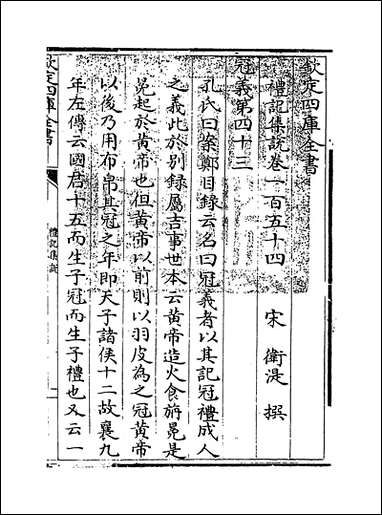 欽定四庫全書
禮記集說卷一百五十四
宋 衛湜 撰
冠義第四十三
孔氏曰案鄭目録云名曰冠義者以其記冠禮成人
之義此於别録屬吉事世本云黄帝造火食旃冕是
冕起於黄帝也但黄帝以前則以羽皮為之冠黄帝
以後乃用布帛其冠之年即天子諸侯十二故襄九
年左傳云國君十五而生子冠而生子禮也又云一
欽定四庫全書
禮記集說